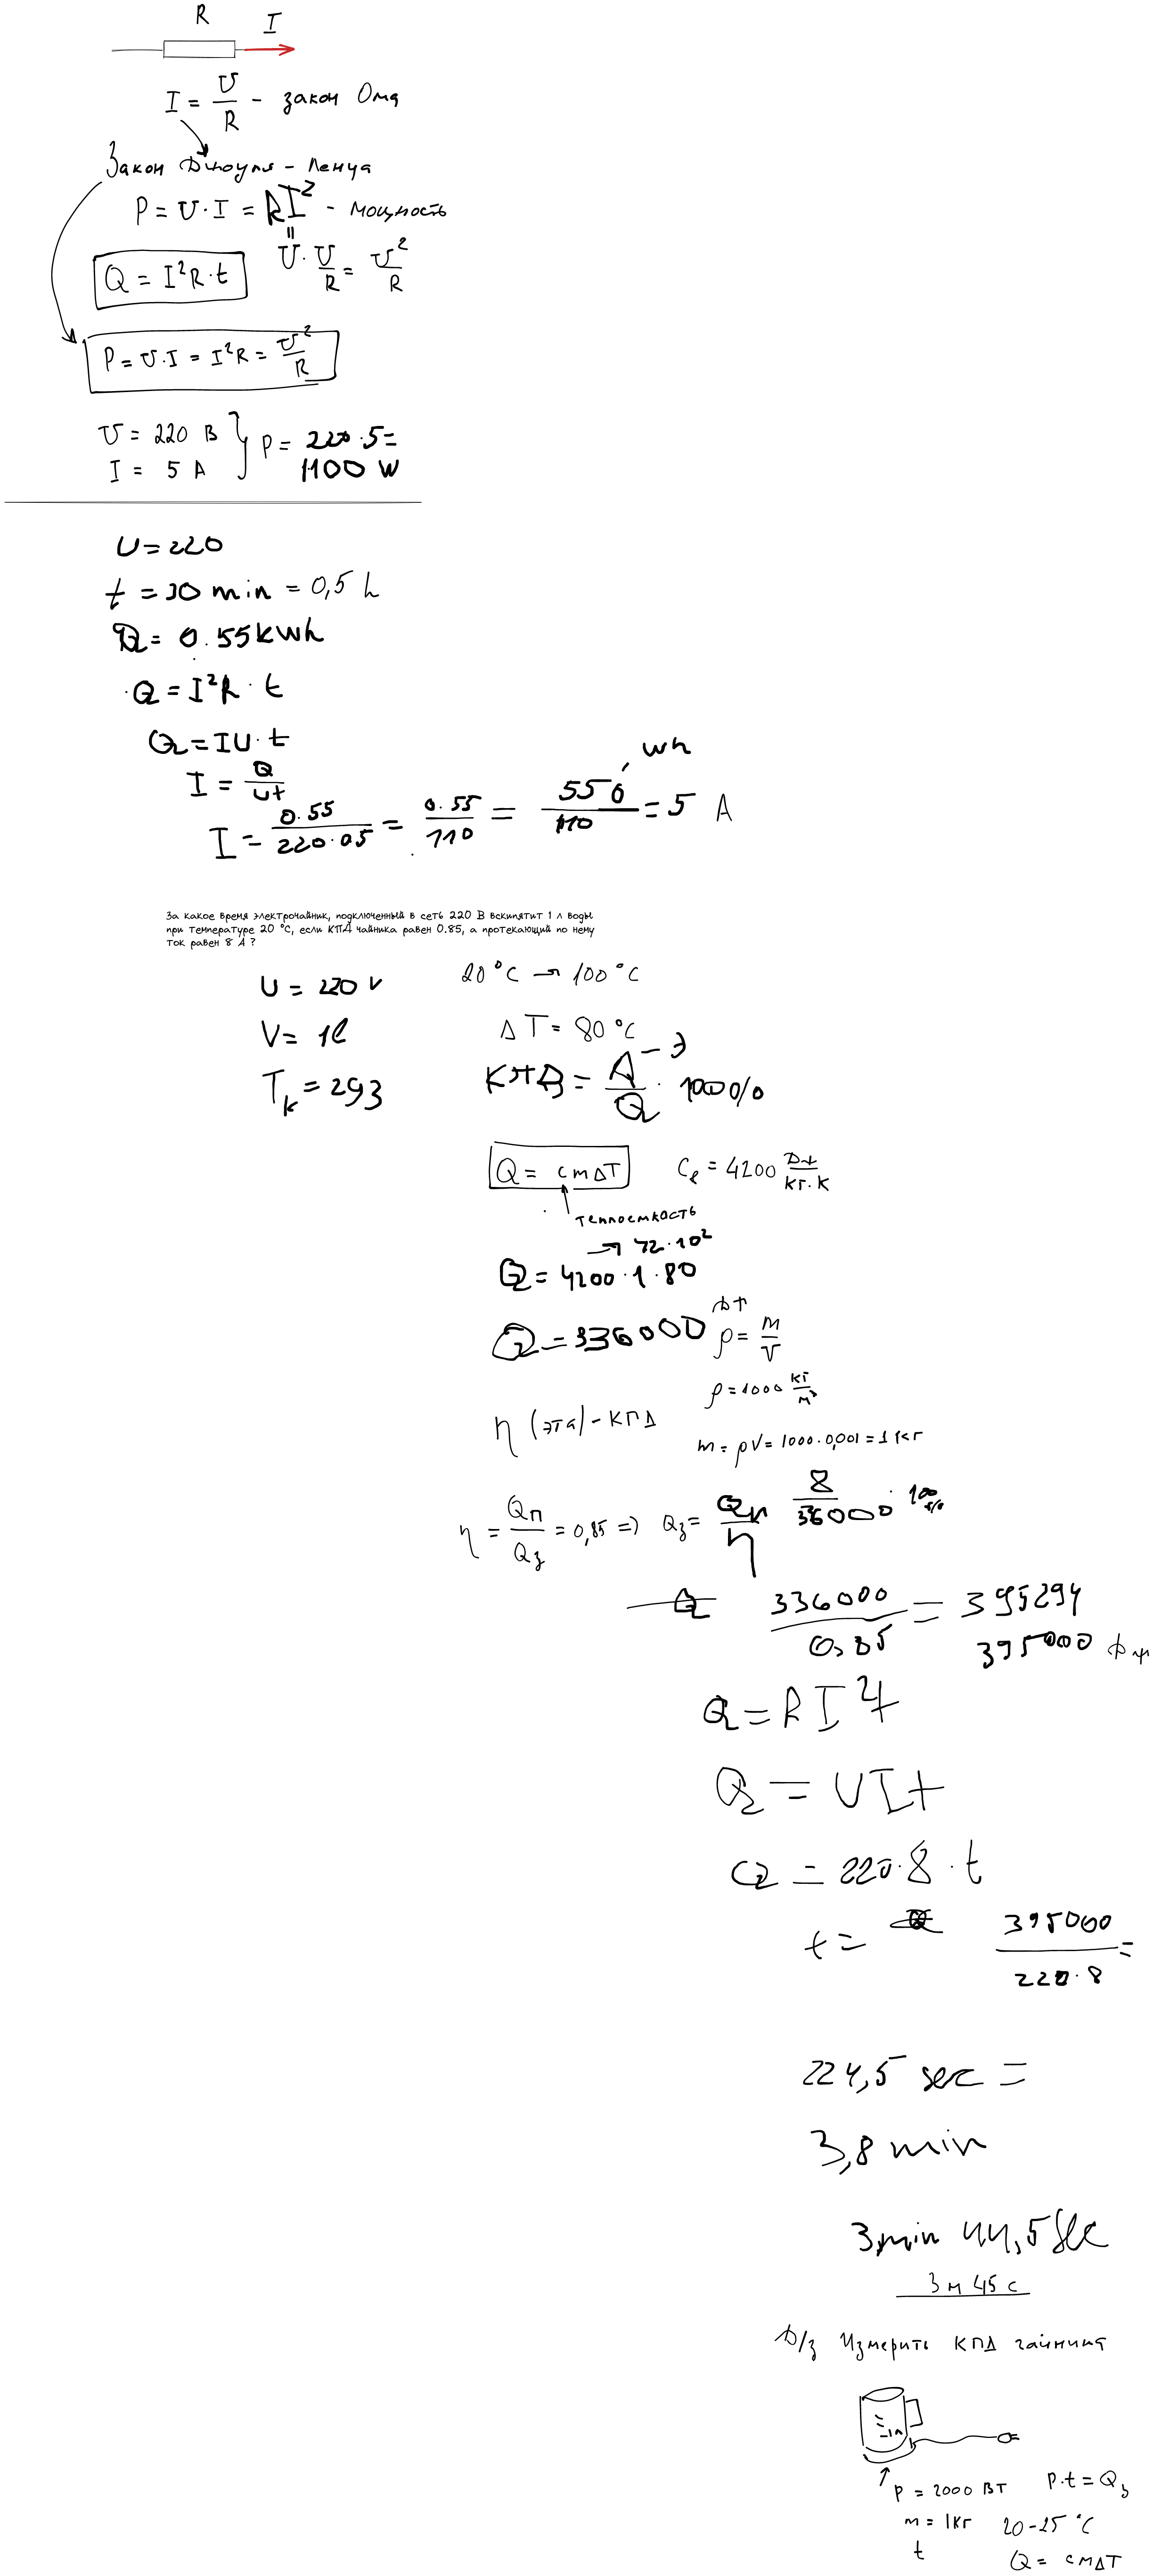 R I
I = U/R - закон Ома
Закон Джоуля - Ленца
P = U·I = RI² - мощность
=
U·U/R = U²/R
Q = I²R·t
P = U·I = I²R = U²/R
U = 220 В
I = 5 А
} P = 220·5 =
1100 W
U = 220
t = 30 min = 0,5 h
Q = 0.55 kWh
Q = I²R · t
Q = IU·t
I = Q/Ut
Wh
I = 0.55/220·05 = 0.55/110 = 550/110 = 5 A
За какое время электрочайник, подключенный в сеть 220 В вскипятит 1 л воды
при температуре 20 °С, если КПД чайника равен 0.85, а протекающий по нему
ток равен 8 А ?
U = 220 V
V = 1l
Tk = 293
20°C → 100°C
ΔT = 80 °C
КПД = A/Q · 100% - Э
Q = cmΔT
Cв = 4200 Дж/кг·К
теплоемкость
→ 42·10²
Q = 4200·1·80
Q = 336000 Дж
ρ = m/V
ρ = 1000 кг/м³
η (эта) - КПД
m = ρV = 1000·0,001 = 1 кг
η = Qп/Qз = 0,85 => Qз = Qп/η
8/336000 · 100%
Q 336000/0,85 = 395294
395000 Дж
Q = RI²t
Q = UIt
Q = 220·8·t
t = 395000/220·8 =
224,5 sec =
3,8 min
3 min 44,5 sec
3 м 45 с
Д/з Измерить КПД чайника
P = 2000 Вт P·t = Qз
m = 1кг 20-25 °C
t
Q = cmΔT